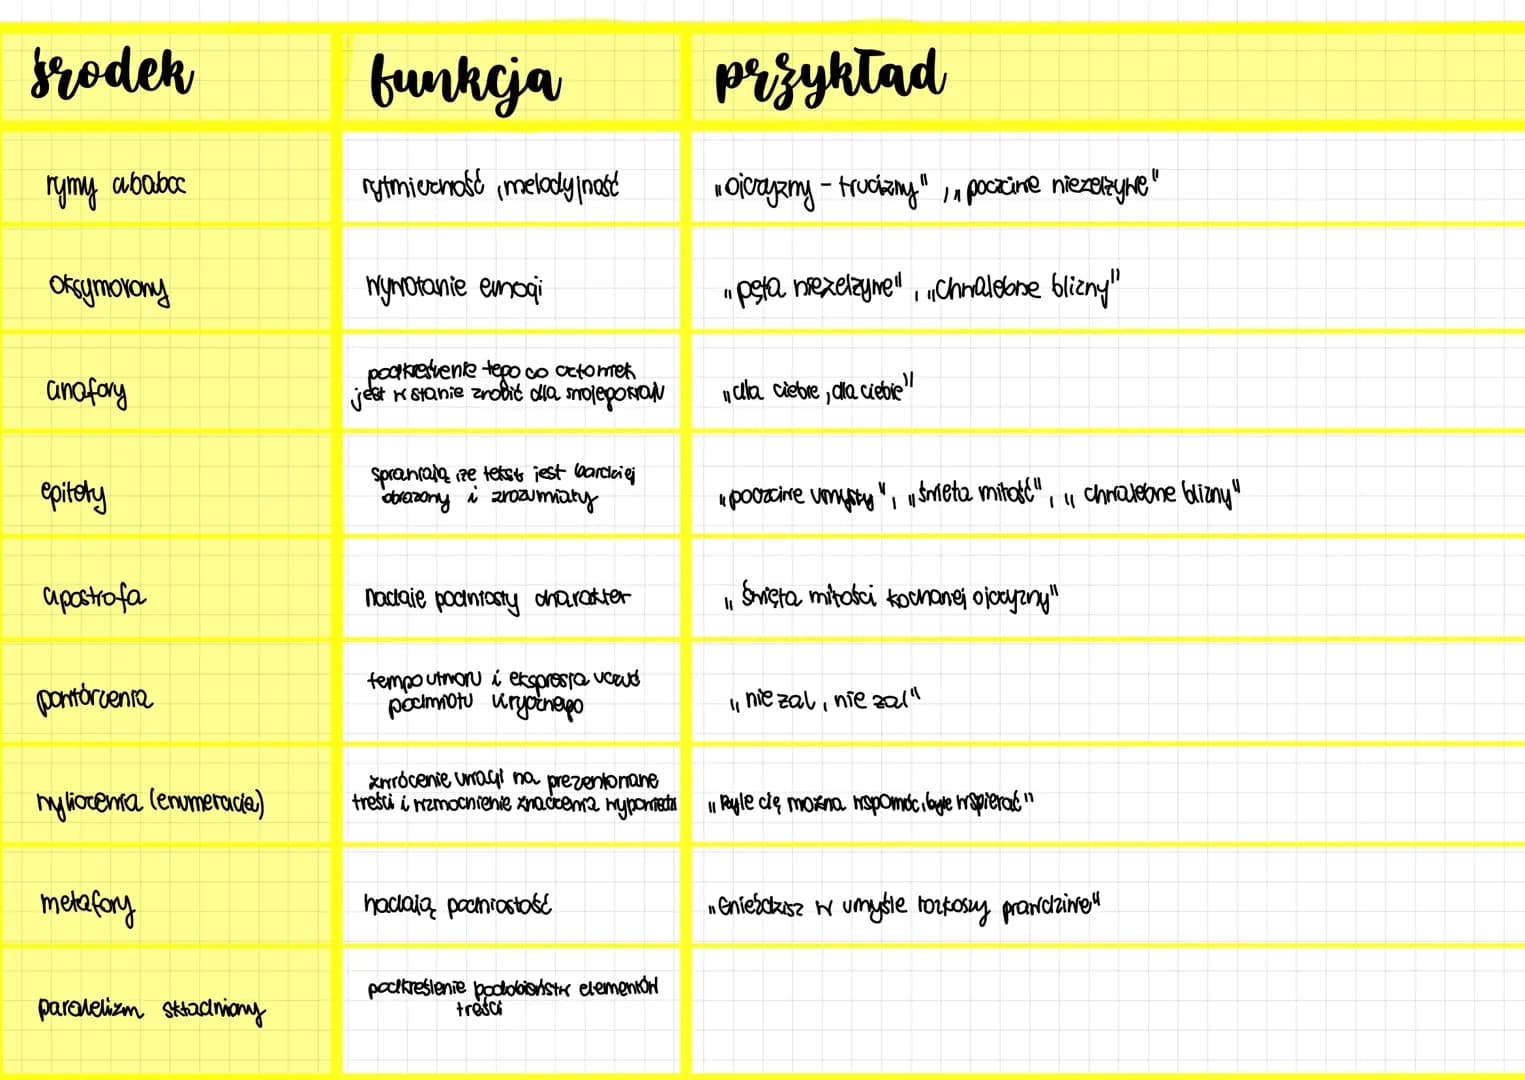 środek funkcja przykład
rymy ababcc rytmiczność, melodyjność „ojczyzny - trucizny", „poczciwe niezelżywe"
oksymorony wywołanie emocji „pęta niezelżywe", „chwalebne blizny"
anafory
podkreślenie tego co człowiek
jest w stanie zrobić dla swojego kraju
„dla ciebie, dla ciebie"
epitety
sprawiają, że tekst jest bardziej
obrazowy i zrozumiały
„poczciwe umysły", „święta miłość", „chwalebne blizny"
apostrofa nadaje podniosły charakter „Święta miłości kochanej ojczyzny"
powtórzenia
tempo utworu i ekspresja uczuć
podmiotu lirycznego
„nie żal, nie żal"
wyliczenia (enumeracje)
zwrócenie uwagi na prezentowane
treści i wzmocnienie znaczenia wypowiedzi
„Byle cię można wspomóc, byle wspierać"
metafory nadają podniosłość „Gnieździsz w umyśle rozkoszy prawdziwe"
paralelizm składniowy
podkreślenie podobieństw elementów
treści